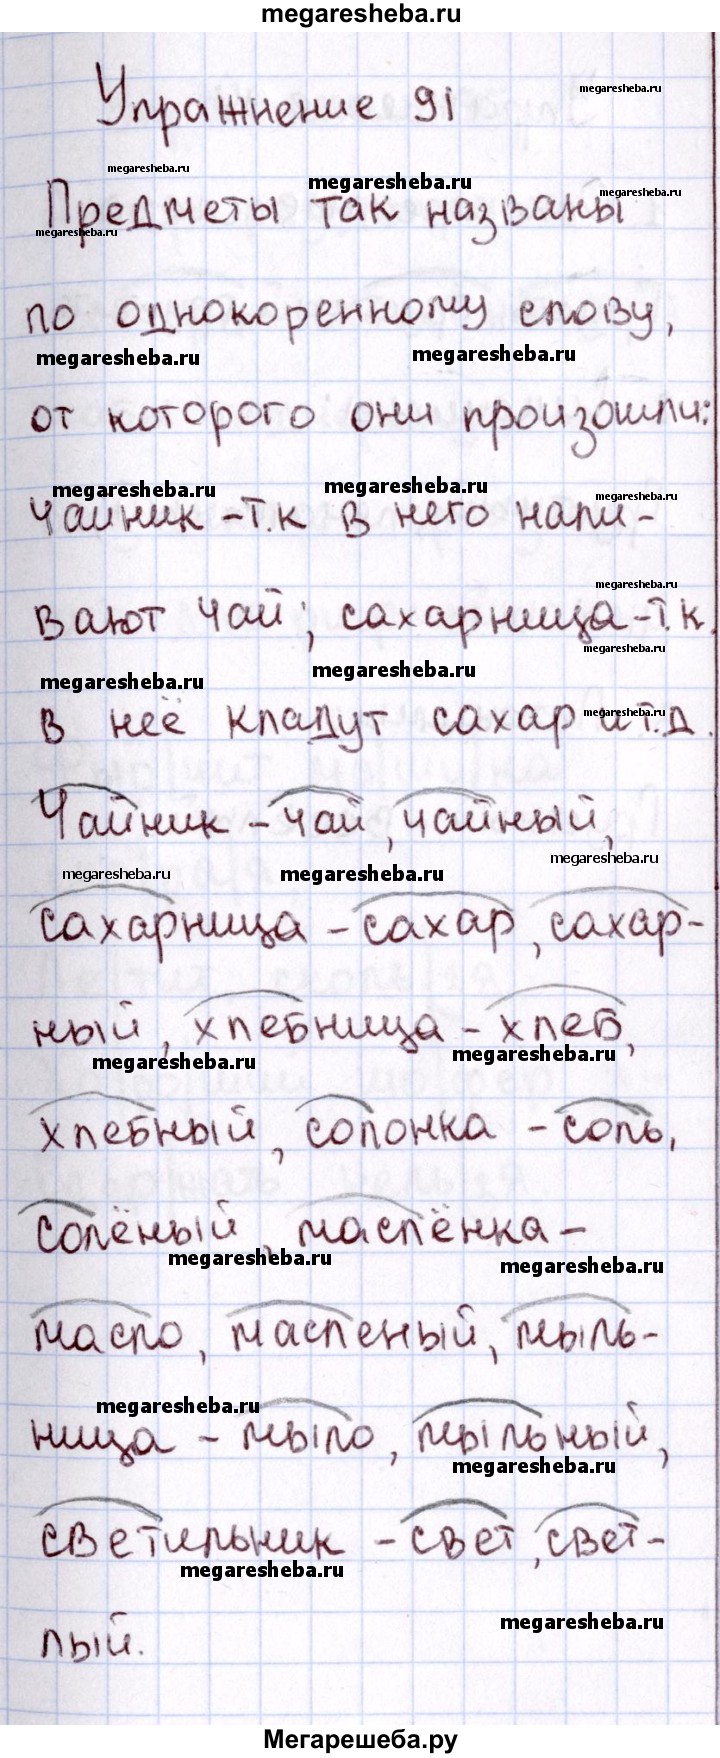 megaresheba.ru
Упражнение 91
megaresheba.ru
megaresheba.ru
megaresheba.ru
megaresheba.ru
Предметы так названы
megaresheba.ru
по однокоренному слову,
megaresheba.ru
megaresheba.ru
от которого они произошли:
megaresheba.ru
megaresheba.ru
megaresheba.ru
чайник - т.к в него нали-
megaresheba.ru
вают чай; сахарница - т.к.
megaresheba.ru
megaresheba.ru
megaresheba.ru
в неё кладут сахар и т.д.
megaresheba.ru
Чайник - чай, чайный,
megaresheba.ru
megaresheba.ru
megaresheba.ru
сахарница - сахар, сахар-
ный, хлебница - хлеб,
megaresheba.ru
megaresheba.ru
хлебный, солонка - соль,
солёный, маслёнка -
megaresheba.ru
megaresheba.ru
масло, масленый, мыль-
megaresheba.ru
ница - мыло, мыльный,
megaresheba.ru
светильник - свет, свет-
megaresheba.ru
megaresheba.ru
лый.
Мегарешеба.ру